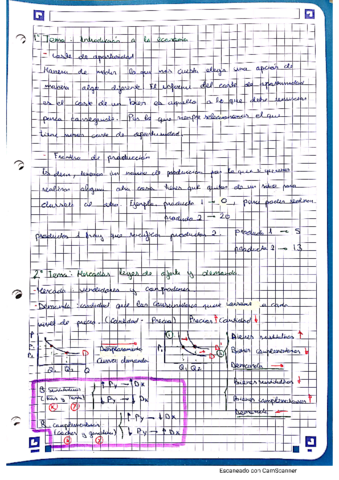 1º Tema - Introducción a la economía
- Coste de oportunidad
Manera de medir lo que nos cuesta elegir una opción de
manera algo diferente. El informe del coste de oportunidad
es el coste de un bien es aquello a lo que debo renunciar
para conseguirlo. Por lo que siempre seleccionaremos el que
tiene menor coste de oportunidad.
- Frontera de producción
Es decir, tenemos un máximo de producción por lo que si queremos
realizar alguna otra cosa habrá que quitar de un sitio para
dárselo al otro. Ejemplo: producto 1 → 0, para poder
producto 2 → 20
producto 1 hay que sacrificar producto 2. producto 1 → 5
producto 2 → 13
2º Tema: Mercados, leyes de oferta y demanda.
Mercado: vendedores y compradores.
Demanda: cantidad que los consumidores quieren a cada
nivel de precios. (Cantidad - Precio) Precios ↑ cantidad ↓
P
D
Desplazamiento
Curva demanda
Q1 Q2 Q
P
D
Q1 Q2
Bienes sustitutivos ↑
Bienes complementarios ↓
Demanda →
Bienes sustitutivos ↓
Bienes complementarios ↑
Demanda ←
B. sustitutivos
↑ Py → ↑ Dx
↓ Py → ↓ Dx
B. complementarios
(coches y gasolina)
↑ Py → ↓ Dx
↓ Py → ↑ Dx
Escaneado con CamScanner